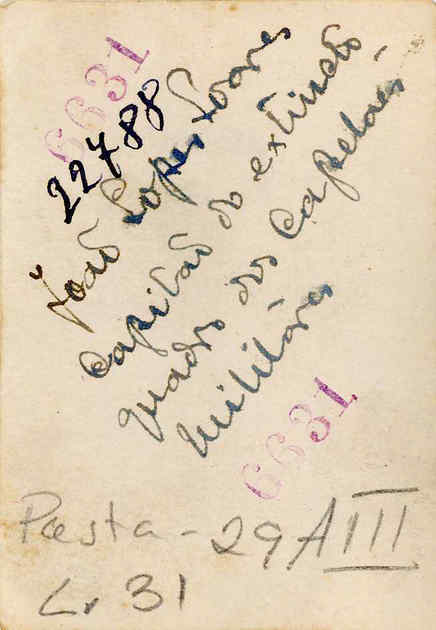 6631
22788
João Lopes Soares
Capitão do extincto
quadro dos Capelães
militáres
6631
Pasta - 29 A III
Lv 31